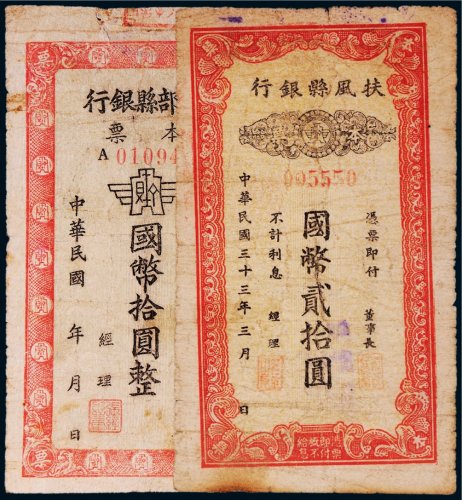 扶風縣銀行
005550
憑票即付
董事長
國幣貳拾圓
不計利息
經理
中華民國三十三年三月 日
縣銀行
本票
A 01094
國幣拾圓整
經理
中華民國 年 月 日
票
票